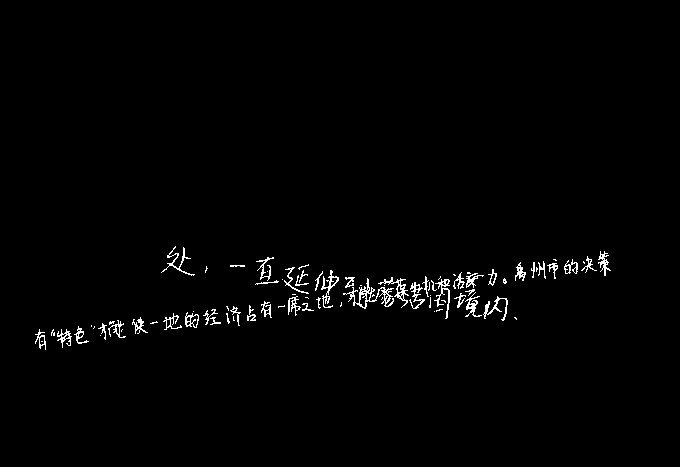 处,一直延伸至国境内、
有"特色"才能使一地的经济占有一席之地,才能蓬勃生机和活力。禹州市的决策